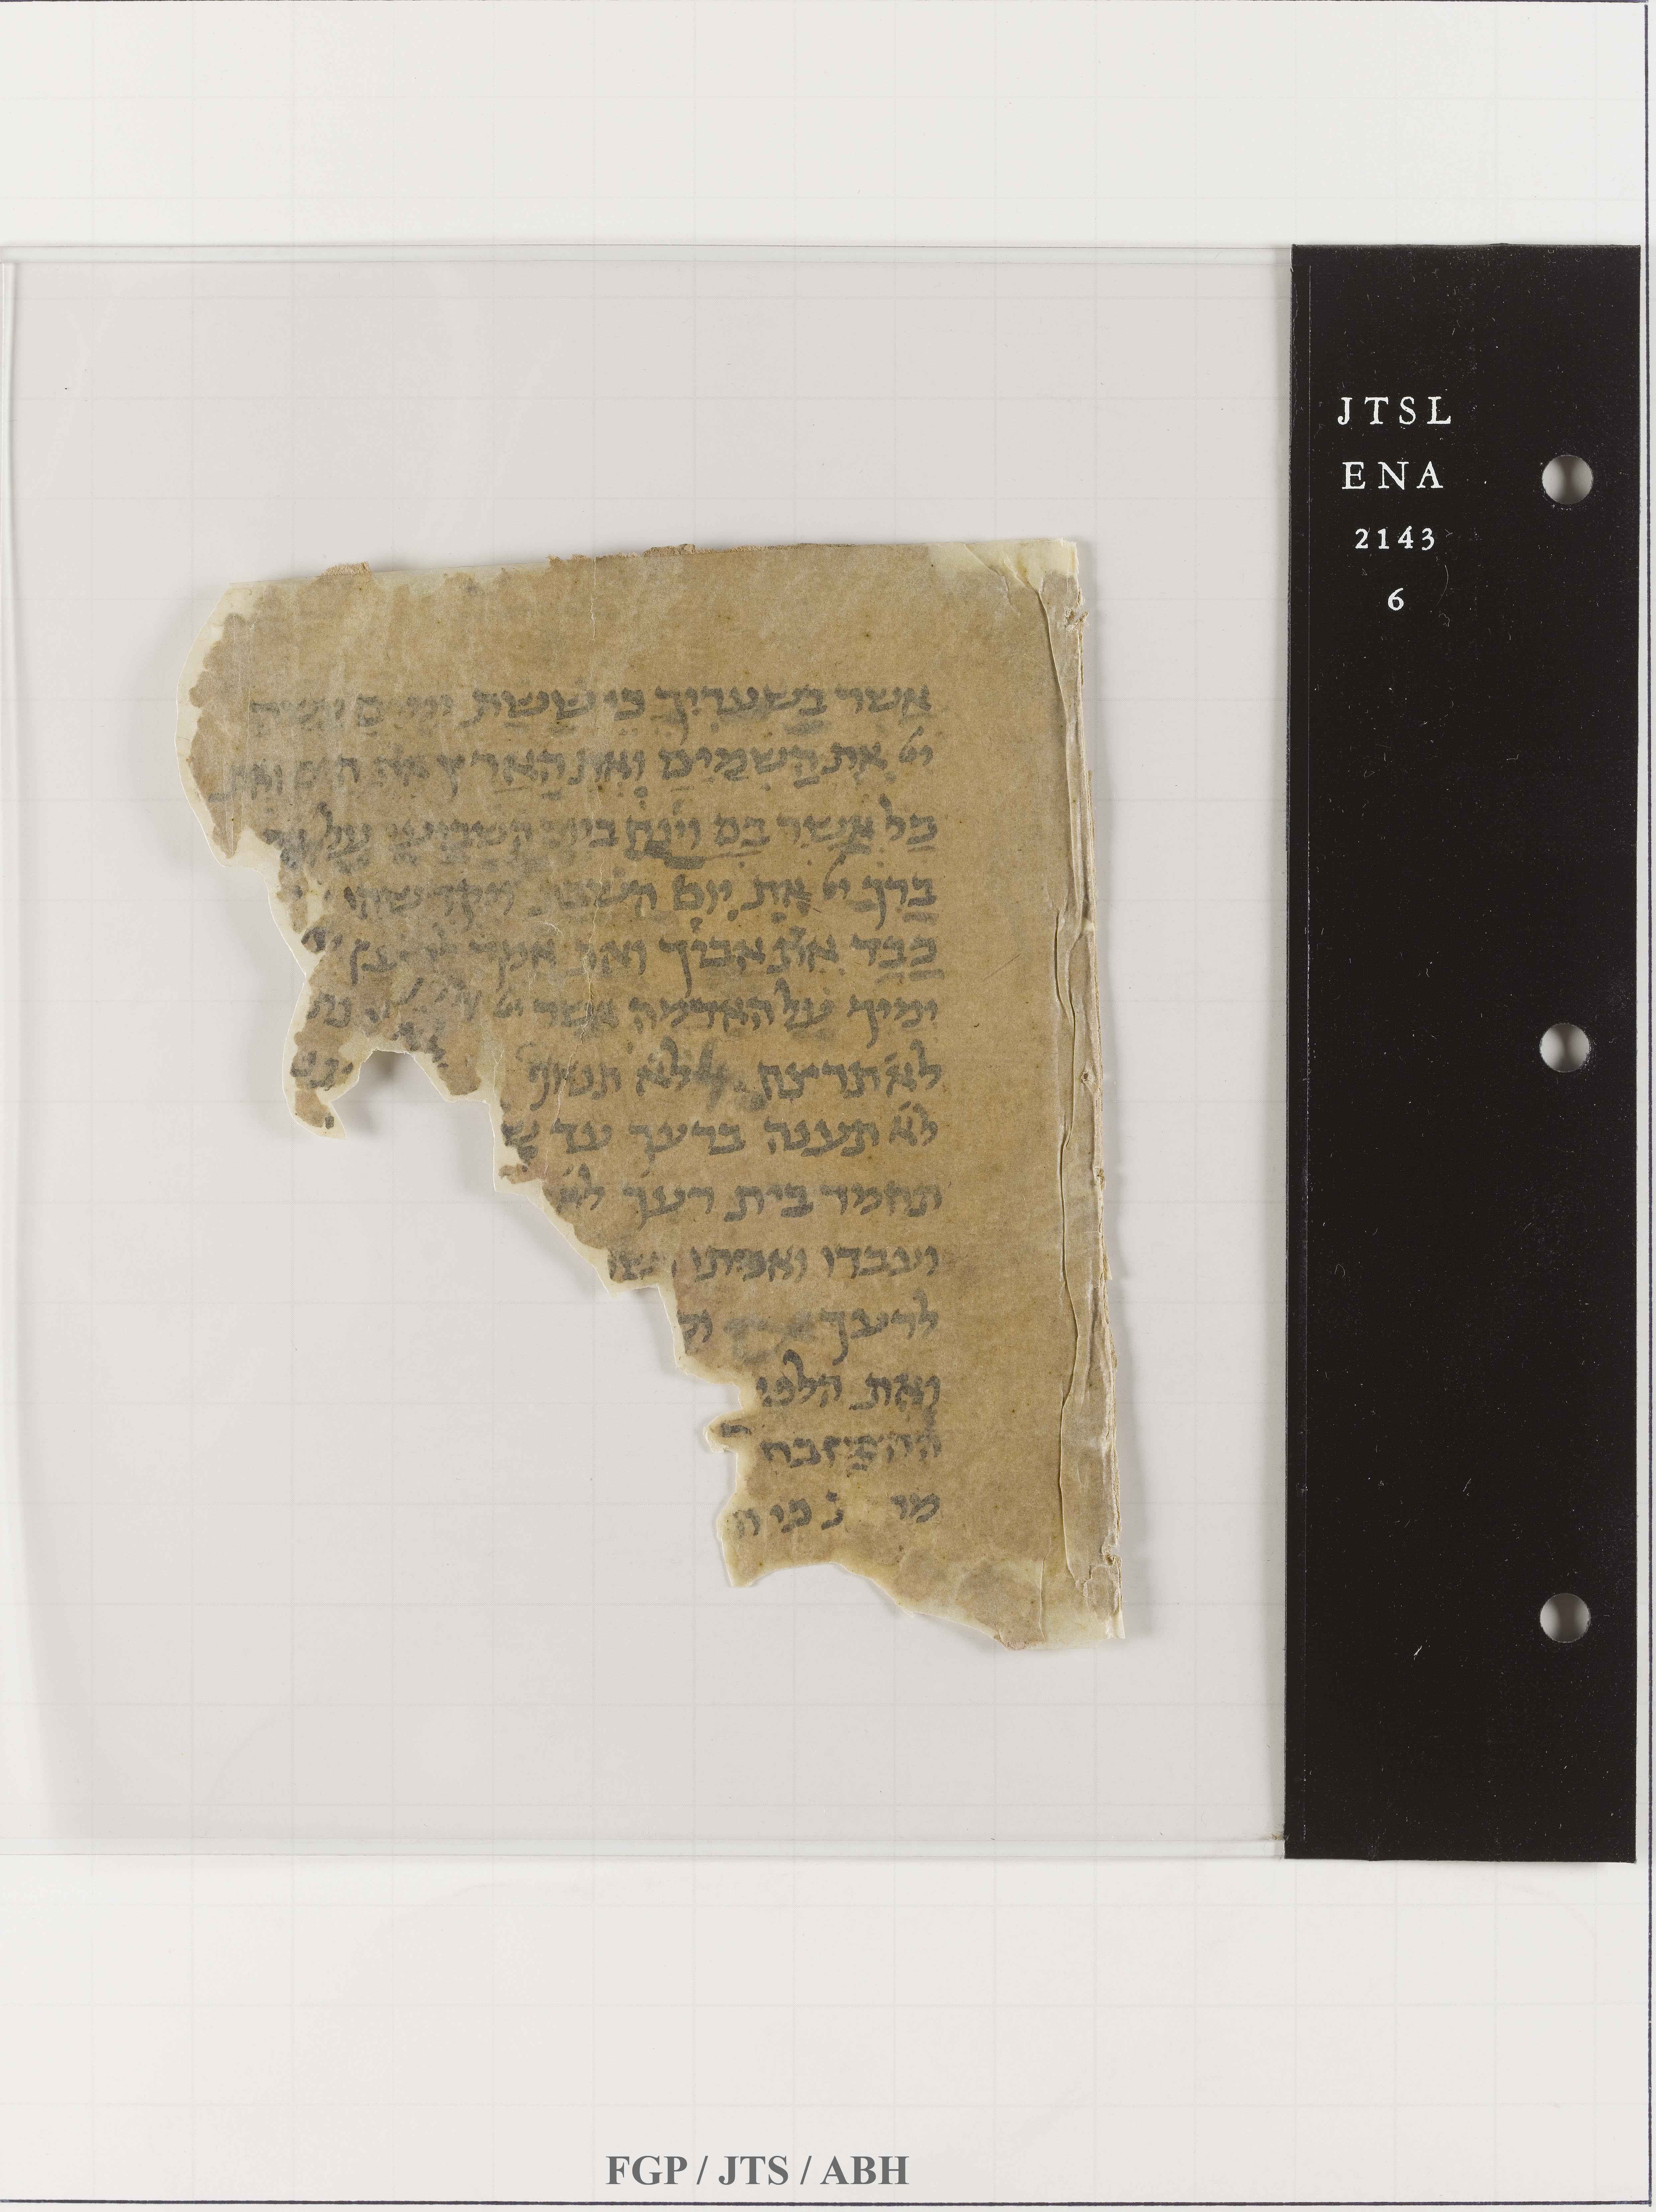 אשר בשעריך כי ששת ימים עשה
יי את השמים ואת הארץ את הים ואת
כל אשר בם וינח ביום השביעי על
ברך יי את יום השבת ויקדשהו
כבד את אביך ואת אמך למען
ימיך על האדמה אשר יי
לא תרצח לא תנאף
לא תענה ברעך עד
תחמד בית רעך לא
ועבדו ואמתו
לרעך
ואת הלפי
מזבח
כי
JTSL
ENA
2143
6
FGP / JTS / ABH